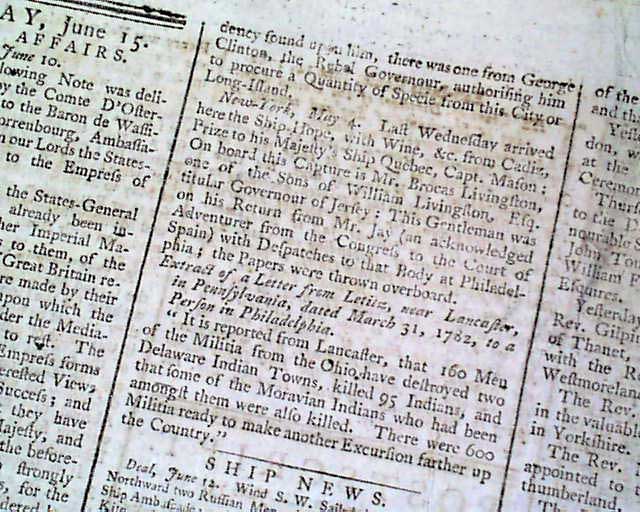 AY, June 15.
AFFAIRS.
June 10.
lowing Note was deli-
y the Comte D'Oster-
to the Baron de Wassi-
orrenbourg, Ambassa-
n our Lords the States-
to the Empress of
the States-General
already been in-
her Imperial Ma-
s to them, of the
Great Britain re-
re made by their
upon which the
der the Media-
to rest. The
Empress forms
erested View,
Success; and
they have
Majesty, and
the before-
strongly
s, for the
dency found upon him, there was one from George
Clinton, the Rebel Governour, authorising him
to procure a Quantity of Specie from this City or
Long-Island.
New-York, May 4. Last Wednesday arrived
here the Ship Hope, with Wine, &c. from Cadiz,
Prize to his Majesty's Ship Quebec, Capt. Mason:
On board this Capture is Mr. Brocas Livingston,
one of the Sons of William Livingston, Esq.
titular Governour of Jersey: This Gentleman was
on his Return from Mr. Jay (an acknowledged
Adventurer from the Congress to the Court of
Spain) with Despatches to that Body at Philadel-
phia; the Papers were thrown overboard.
Extract of a Letter from Letitz, near Lancaster,
in Pennsylvania, dated March 31, 1782, to a
Person in Philadelphia.
" It is reported from Lancaster, that 160 Men
of the Militia from the Ohio have destroyed two
Delaware Indian Towns, killed 95 Indians, and
that some of the Moravian Indians who had been
amongst them were also killed. There were 600
Militia ready to make another Excursion farther up
the Country."
SHIP NEWS.
Deal, June 12. Wind S. W.
Northward two Russian
of the
and th
don, w
at the
Ceremo
to the D
nourable
John
William
Esquires.
Yesterday
Rev. Gilpin
of Thanet,
with the R
Westmorelan
The Rev.
in the valuable
in Yorkshire.
The Rev.
appointed to
thumberland,